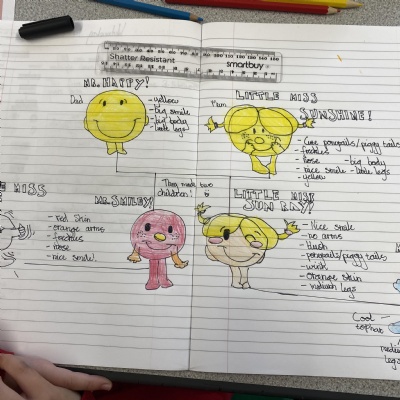 Shatter Resistant
smartbuy
MR. HAPPY!
Dad
- yellow
- big smile
- big body
- little legs
LITTLE MISS
SUNSHINE!
Mum
- Cute ponytails/piggy tails
- freckles
- nose - big body
- nice smile - little legs
- yellow
They made two
children!
MISS
MR. SMILEY!
- red skin
- orange arms
- freckles
- nose
- nice smile!
LITTLE MISS
SUN RAY!
- Nice smile
- no arms
- blush
- ponytails/piggy tails
- wink
- orange skin
- medium legs
Cool
top hat
medium
legs